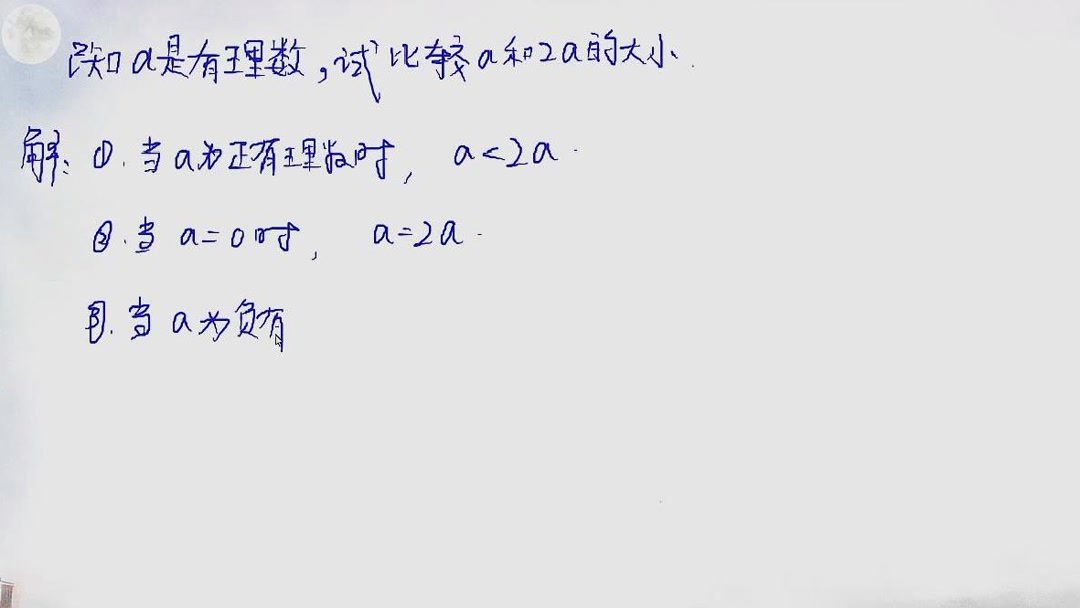 已知a是有理数,试比较a和2a的大小.
解:①.当a为正有理数时, a<2a.
②.当 a=0时, a=2a.
③.当 a为负有